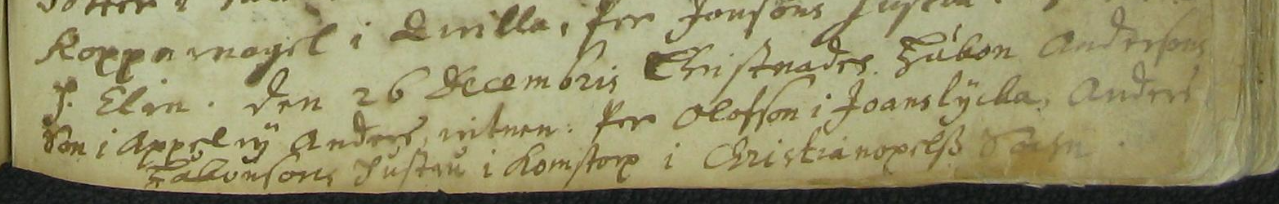 Kopparnagel i Qwilla, Per Jonsons hustru
h. Elin. den 26 Decembris Christnades Håkon Andersons
Son i Appelryd Anders, witnen: Per Olofson i Joanslycka, Anders
Håkonsons hustru i Komstorp i Christianopelß Sochn.